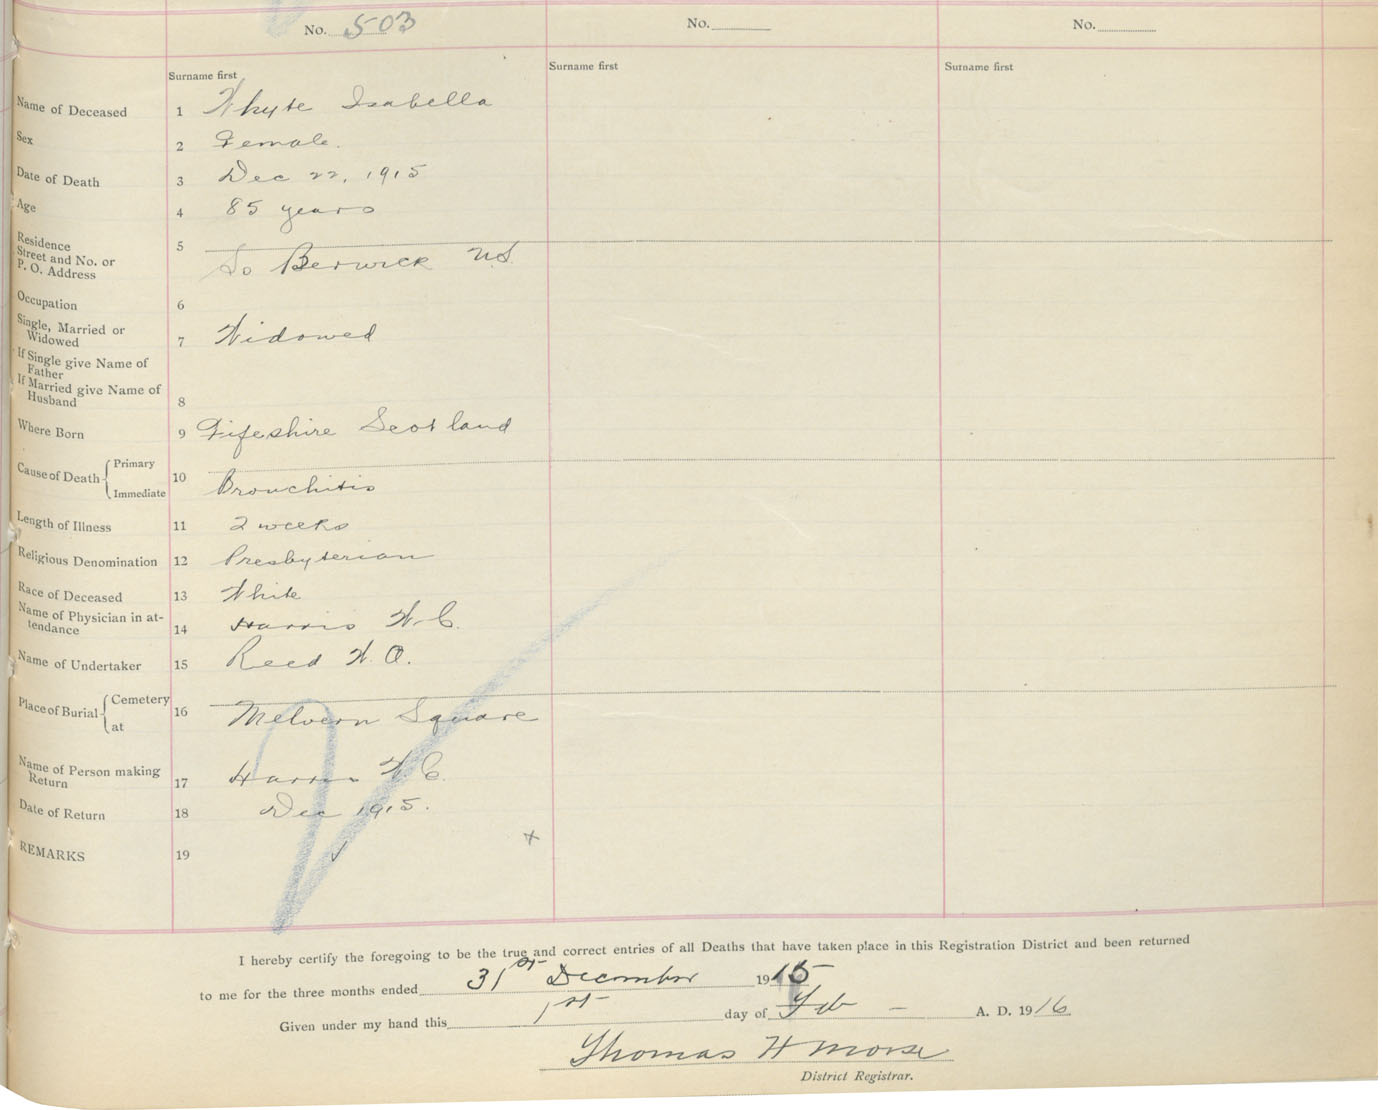 No. 503 No. No.
Surname first Surname first Surname first
Name of Deceased 1 Whyte Isabella
Sex 2 Female.
Date of Death 3 Dec 22, 1915
Age 4 85 years
Residence
Street and No. or
P. O. Address 5 So Berwick N.S.
Occupation 6
Single, Married or
Widowed 7 Widowed
If Single give Name of
Father
If Married give Name of
Husband 8
Where Born 9 Fifeshire Scotland
Cause of Death { Primary
Immediate 10 Bronchitis
Length of Illness 11 2 weeks
Religious Denomination 12 Presbyterian
Race of Deceased 13 White
Name of Physician in at-
tendance 14 Harris W. C.
Name of Undertaker 15 Reed W. O.
Place of Burial { Cemetery
at 16 Melvern Square
Name of Person making
Return 17 Harris W. C.
Date of Return 18 Dec 1915.
REMARKS 19 ✓ x
I hereby certify the foregoing to be the true and correct entries of all Deaths that have taken place in this Registration District and been returned
to me for the three months ended 31st December 1915
Given under my hand this 1st day of Feb - A. D. 1916
Thomas H Morse
District Registrar.